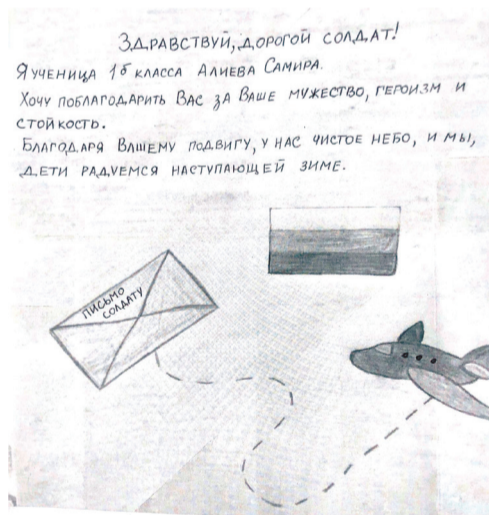 ЗДРАВСТВУЙ, ДОРОГОЙ СОЛДАТ!
Я УЧЕНИЦА 1б КЛАССА АЛИЕВА САМИРА.
ХОЧУ ПОБЛАГОДАРИТЬ ВАС ЗА ВАШЕ МУЖЕСТВО, ГЕРОИЗМ И
СТОЙКОСТЬ.
БЛАГОДАРЯ ВАШЕМУ ПОДВИГУ, У НАС ЧИСТОЕ НЕБО, И МЫ,
ДЕТИ РАДУЕМСЯ НАСТУПАЮЩЕЙ ЗИМЕ.
ПИСЬМО
СОЛДАТУ